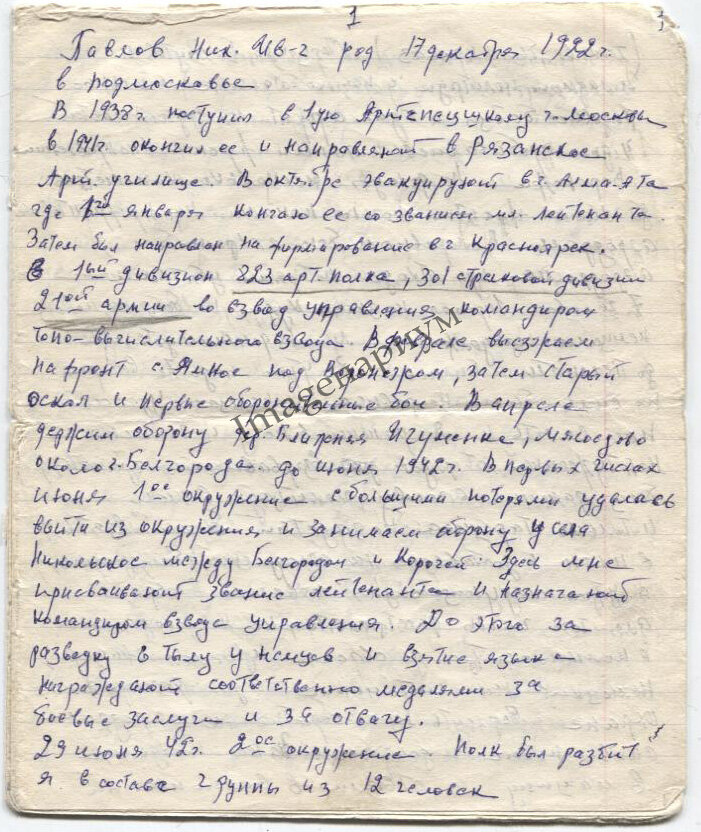 1
Павлов Ник. Ив-ч род 17 декабря 1922 г.
в подмосковье
В 1938 г. поступил в 1ую Артспецшколу г. Москвы
в 1941 г. окончил ее и направляют в Рязанское
Арт. училище В октябре эвакуируют в г. Алма-Ата
где 1го января кончаю ее со званием мл. лейтенанта.
Затем был направлен на формирование в г Красноярск.
В 1ый дивизион 823 арт. полка, 301 стрелковой дивизии
21ой армии во взвод управления командиром
топо-вычислительного взвода. В выезжаем
на фронт с. под Воронежом, затем старый
оскол и первые оборонительные бои. В апреле
держим оборону дер. Ближняя Игуменка, Мясоедово
около г. Белгорода до июня 1942 г. В первых числах
июня 1ое окружение с большими потерями удалась
выйти из окружения и занимаем оборону у села
Никольское между Белгородом и Корочей. Здесь мне
присваивают звание лейтенанта и назначают
командиром взвода управления. До этого за
разведку в тылу у немцев и взятие языка
награждают соответственно медалями за
боевые заслуги и за отвагу.
29 июня 42 г. 2ое окружение. Полк был разбит
я в составе группы из 12 человек
Imagenариум